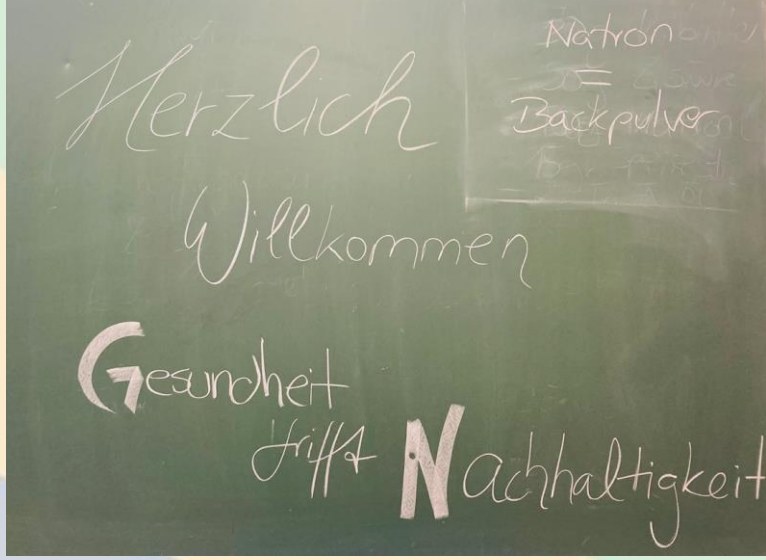 Herzlich
Willkommen
Gesundheit
trifft Nachhaltigkeit
Natron
=
Backpulver